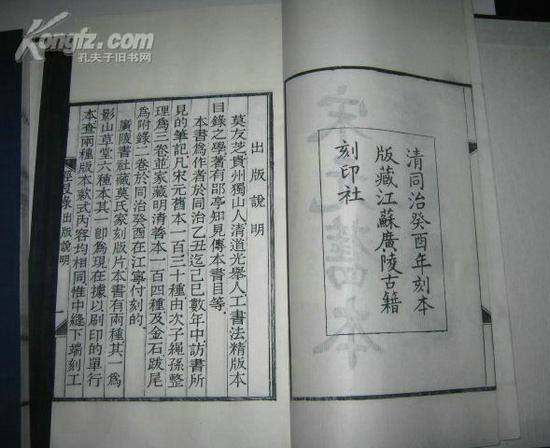 Kongfz.com
孔夫子旧书网
清同治癸酉年刻本
版藏江蘇廣陵古籍
刻印社
出版說明
莫友芝貴州獨山人清道光舉人工書法精版本
目錄之學著有郘亭知見傳本書目等。
本書爲作者於同治乙丑迄己巳數年中訪書所
見的筆記凡宋元舊本一百三十種由次子繩孫整
理爲三卷並家藏明清善本一百四種及金石跋尾
爲附錄二卷於同治癸酉在江寧付刻的。
廣陵書社藏莫氏家刻版片本書有兩種其一爲
影山草堂六種本其一卽爲現在據以刷印的單行
本查兩種版本款式內容均相同惟中縫下端刻工
經眼錄出版說明